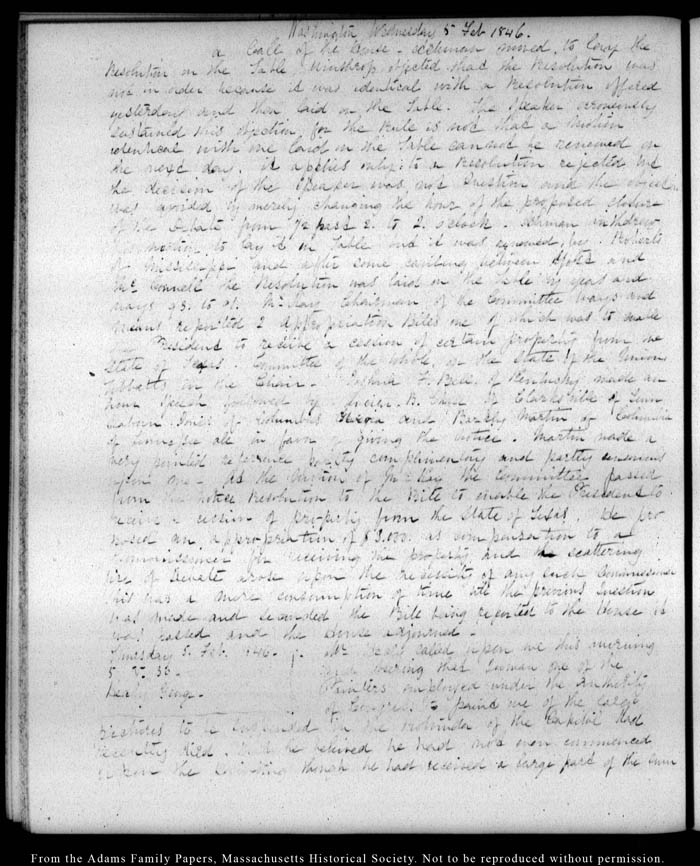 Washington Wednesday 5 Feb 1846.
a Call of the House. Ashmun moved, to lay the
Resolution on the Table. Winthrop objected that the Resolution was
not in order because it was identical with a Resolution offered
yesterday and then laid on the Table. The Speaker erroneously
sustained this objection, for the Rule is not that a Motion
identical with one laid on the Table cannot be renewed on
the next day. it applies only to a Resolution rejected but
the decision of the Speaker was not Question and the object
was avoided by merely changing the hour of the proposed closure
of the Debate from 1/2 past 2. to 2. o'clock. Ashman withdrew
motion to lay it on Table and it was renewed by Roberts
of Mississippi and after some between and
Mc Connell the Resolution was laid on the Table by yeas and
nays 98. to 91. Mc Kay Chairman of the Committee Ways and
means reported 2 Appropriation Bills one of which was to enable
President to receive a cession of certain property from the
State of Texas. Committee of the whole, on the State of the Union
Tibbatts in the Chair. Joshua F. Bell of Kentucky made an
hour speech followed by Lucien B. Chase of Clarksville of Tenn
Seaborn Jones of Columbus Georgia and Barkly Martin of Columbia
of Tennessee all in favor of giving the notice. Martin made a
very pointed reference partly complimentary and partly
upon me. At the motion of Mc Kay the Committee passed
from the notice Resolution to the Bill to enable the President to
receive a cession of property from the State of Texas. He pro
posed an appropriation of $3,000. as compensation to a
Commissioner for receiving the property and a scattering
fire of Debate arose upon the necessity of any such Commissioner
this was a mere consumption of time till the previous question
was made and seconded the Bill being reported to the House it
was passed and the House adjourned.
Thursday 5. Feb. 1846. Mr called upon me this morning
5 Z 30. and that Inman one of the
George. Painters employed under the Authority
of Congress to paint one of the large
pictures to be suspended in the rotunda of the Capitol had
recently died. And he believed he had not even commenced
upon the though he had received a large part of the sum
From the Adams Family Papers, Massachusetts Historical Society. Not to be reproduced without permission.